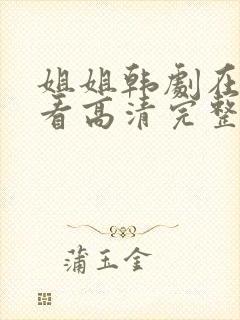 姐姐韩劇在
看高清完整
蒲玉金